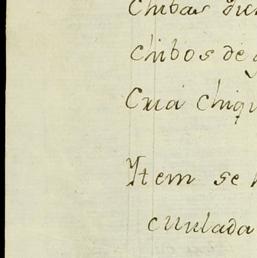 Chibas
chibos de
Cria chiqu
Ytem se
cuulada